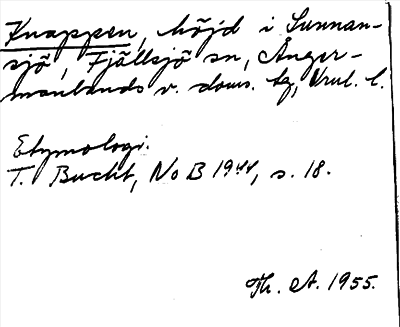 Knappen, höjd i Sunnan-
sjö, Fjällsjö sn, Ånger-
manlands v. doms. tg, Vrnl. l.
Etymologi.
T. Bucht, No B 1944, s. 18.
Th. A. 1955.